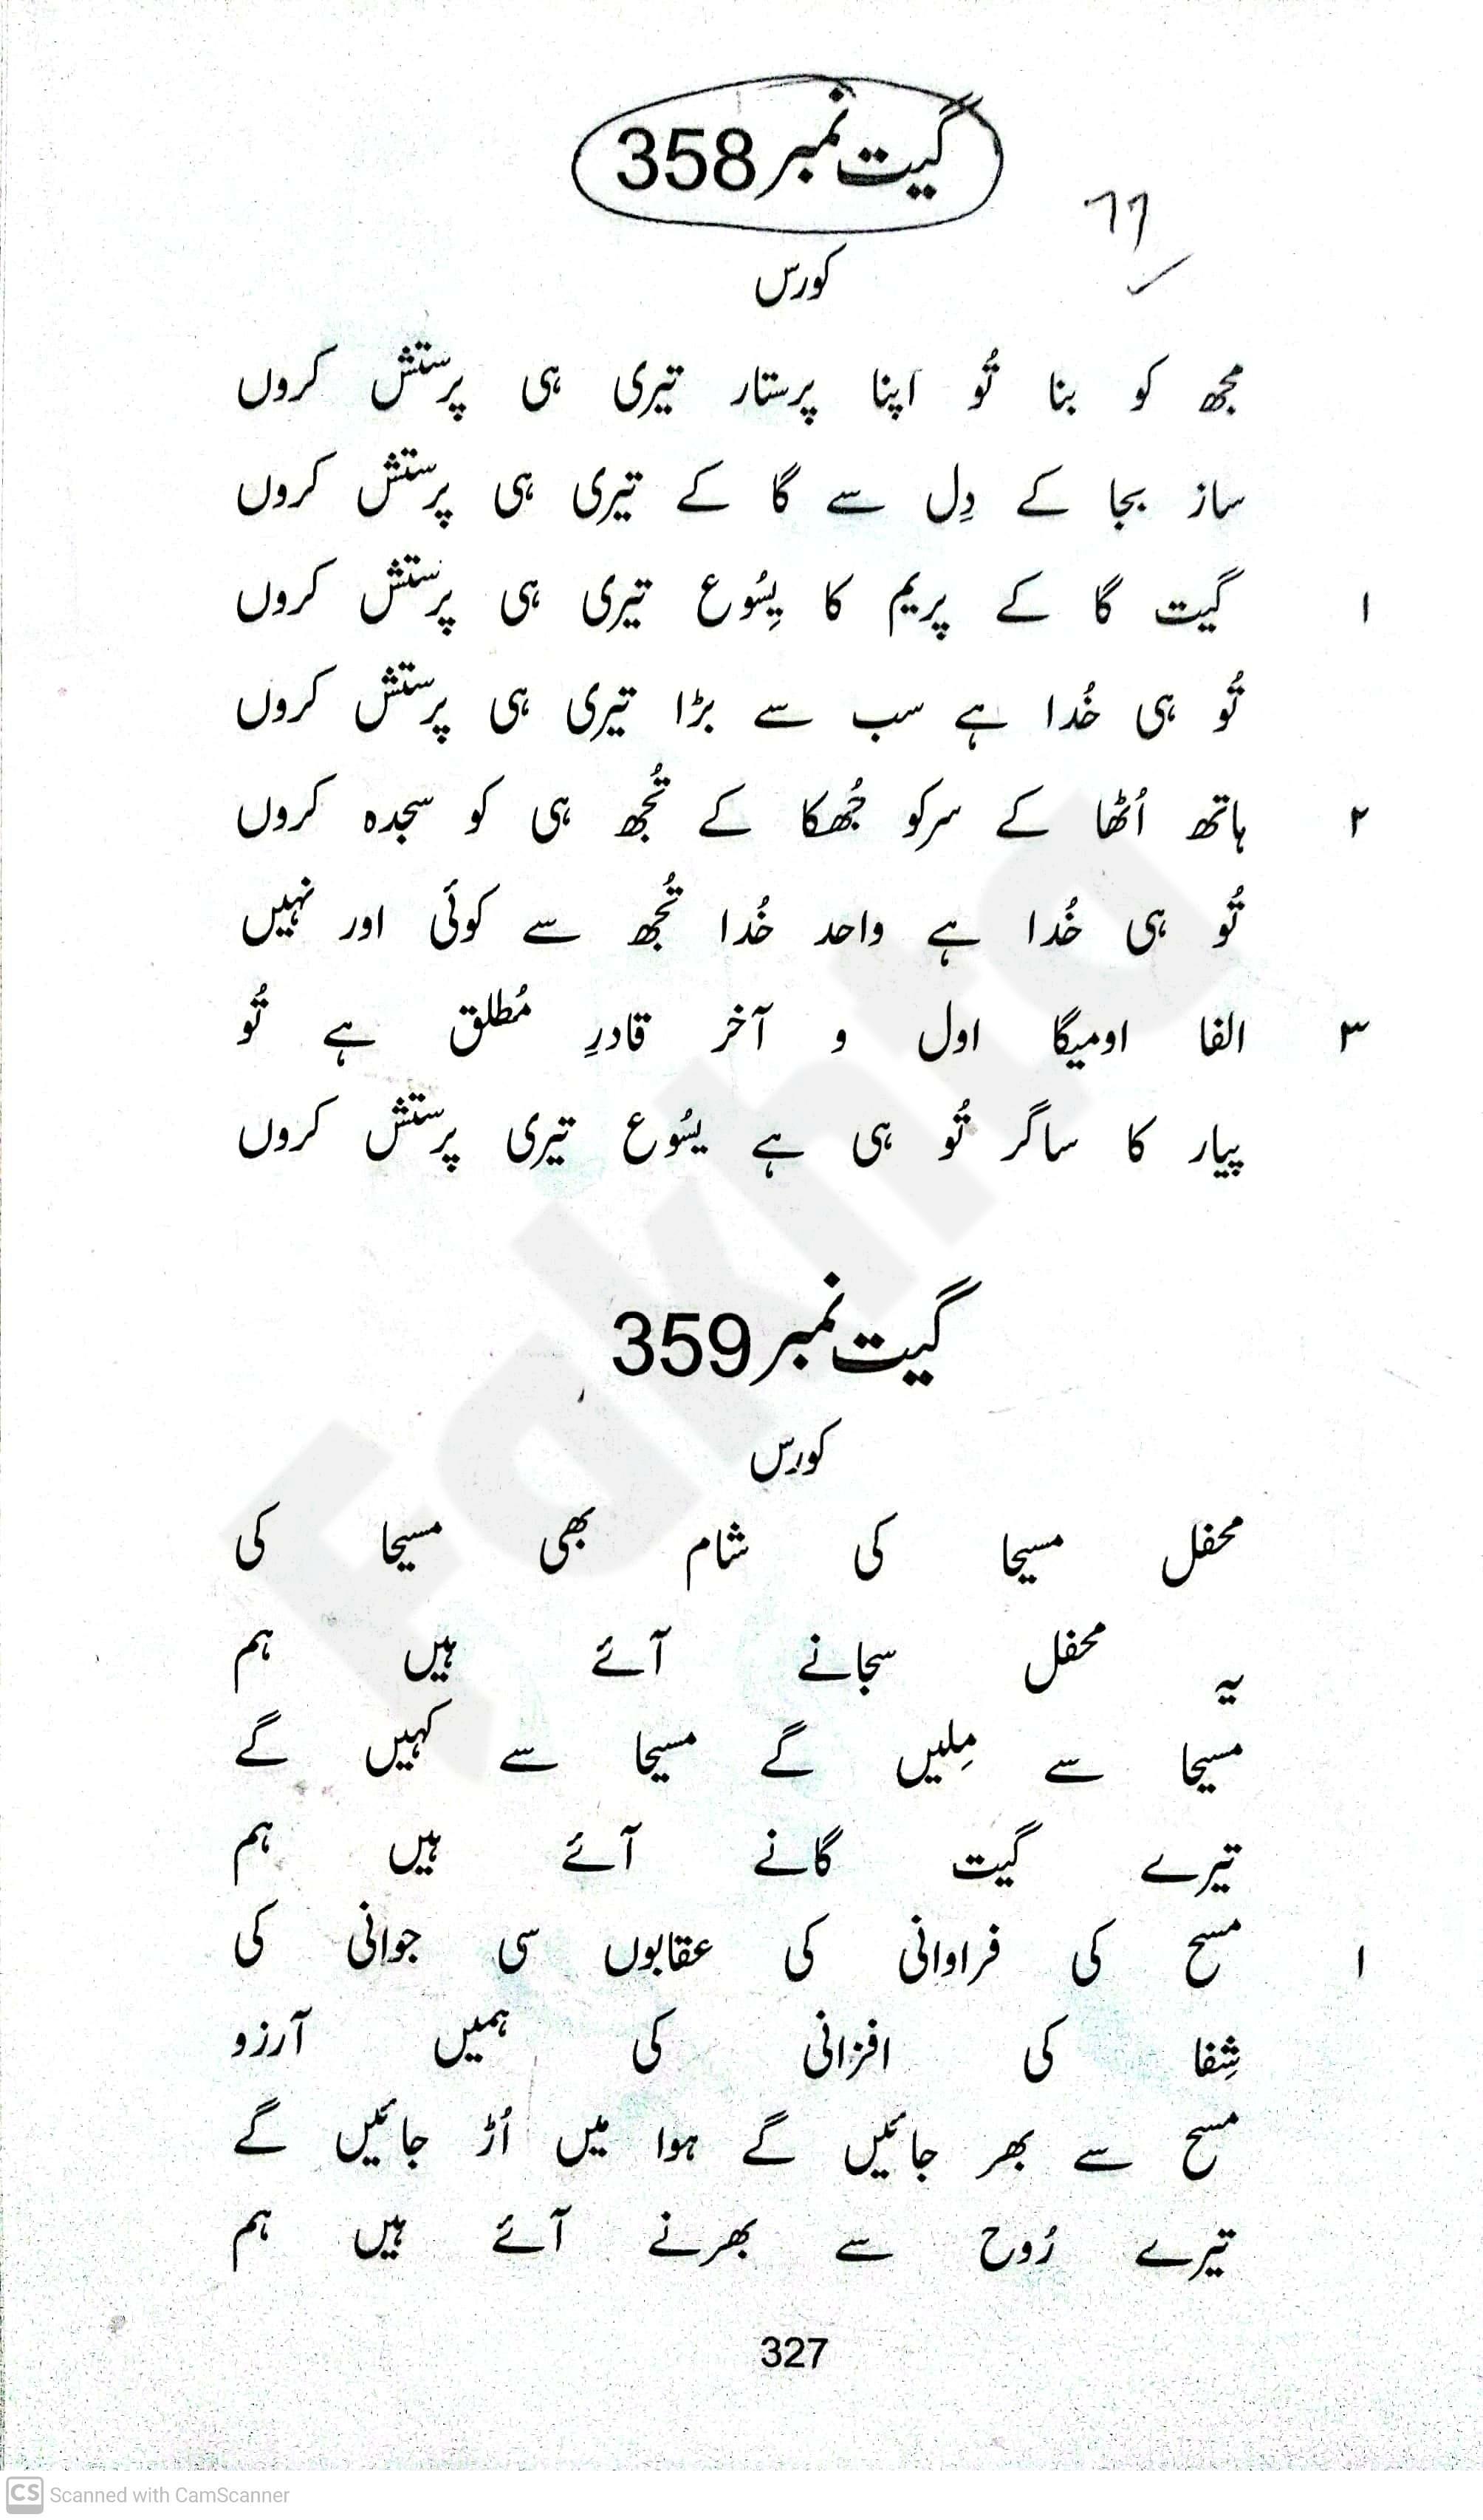 گیت نمبر 358
11
کورس
مجھ کو بنا تُو اپنا پرستار تیری ہی پرستش کروں
ساز بجا کے دِل سے گا کے تیری ہی پرستش کروں
۱ گیت گا کے پریم کا یِسُوع تیری ہی پرستش کروں
تُو ہی خُدا ہے سب سے بڑا تیری ہی پرستش کروں
۲ ہاتھ اُٹھا کے سرکو جُھکا کے تُجھ ہی کو سجدہ کروں
تُو ہی خُدا ہے واحد خُدا تُجھ سے کوئی اور نہیں
۳ الفا اومیگا اول و آخر قادرِ مُطلق ہے تُو
پیار کا ساگر تُو ہی ہے یسُوع تیری پرستش کروں
گیت نمبر 359
کورس
محفل مسیحا کی شام بھی مسیحا کی
یہ محفل سجانے آئے ہیں ہم
مسیحا سے مِلیں گے مسیحا سے کہیں گے
تیرے گیت گانے آئے ہیں ہم
۱ مسح کی فراوانی کی عقابوں سی جوانی کی
شِفا کی افزانی کی ہمیں آرزو
مسح سے بھر جائیں گے ہوا میں اُڑ جائیں گے
تیرے رُوح سے بھرنے آئے ہیں ہم
327
Fakhta
CS Scanned with CamScanner